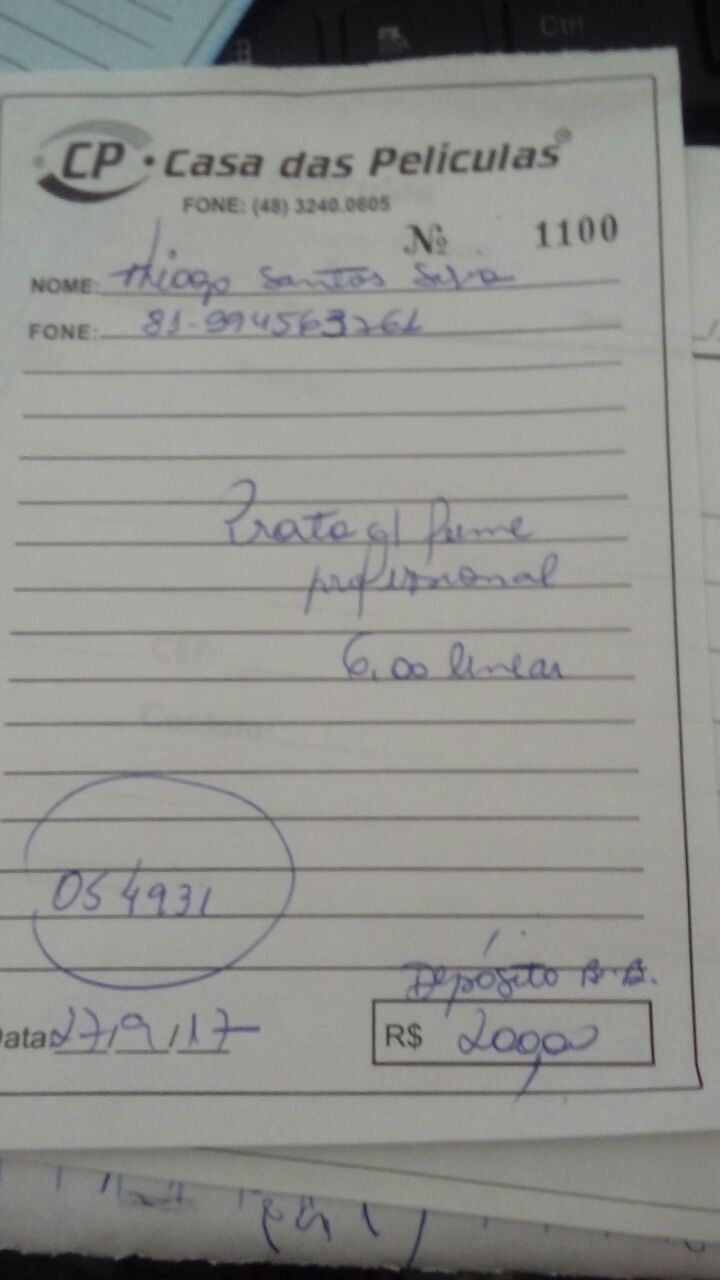 CP • Casa das Peliculas®
FONE: (48) 3240.0605
Nº 1100
NOME: Thiago Santos Silva
FONE: 81-994563261
Prata g/ fume
profissional
6,00 linear
054931
Depósito B.B.
Data 27/9/17
R$ 200,00
Ctrl